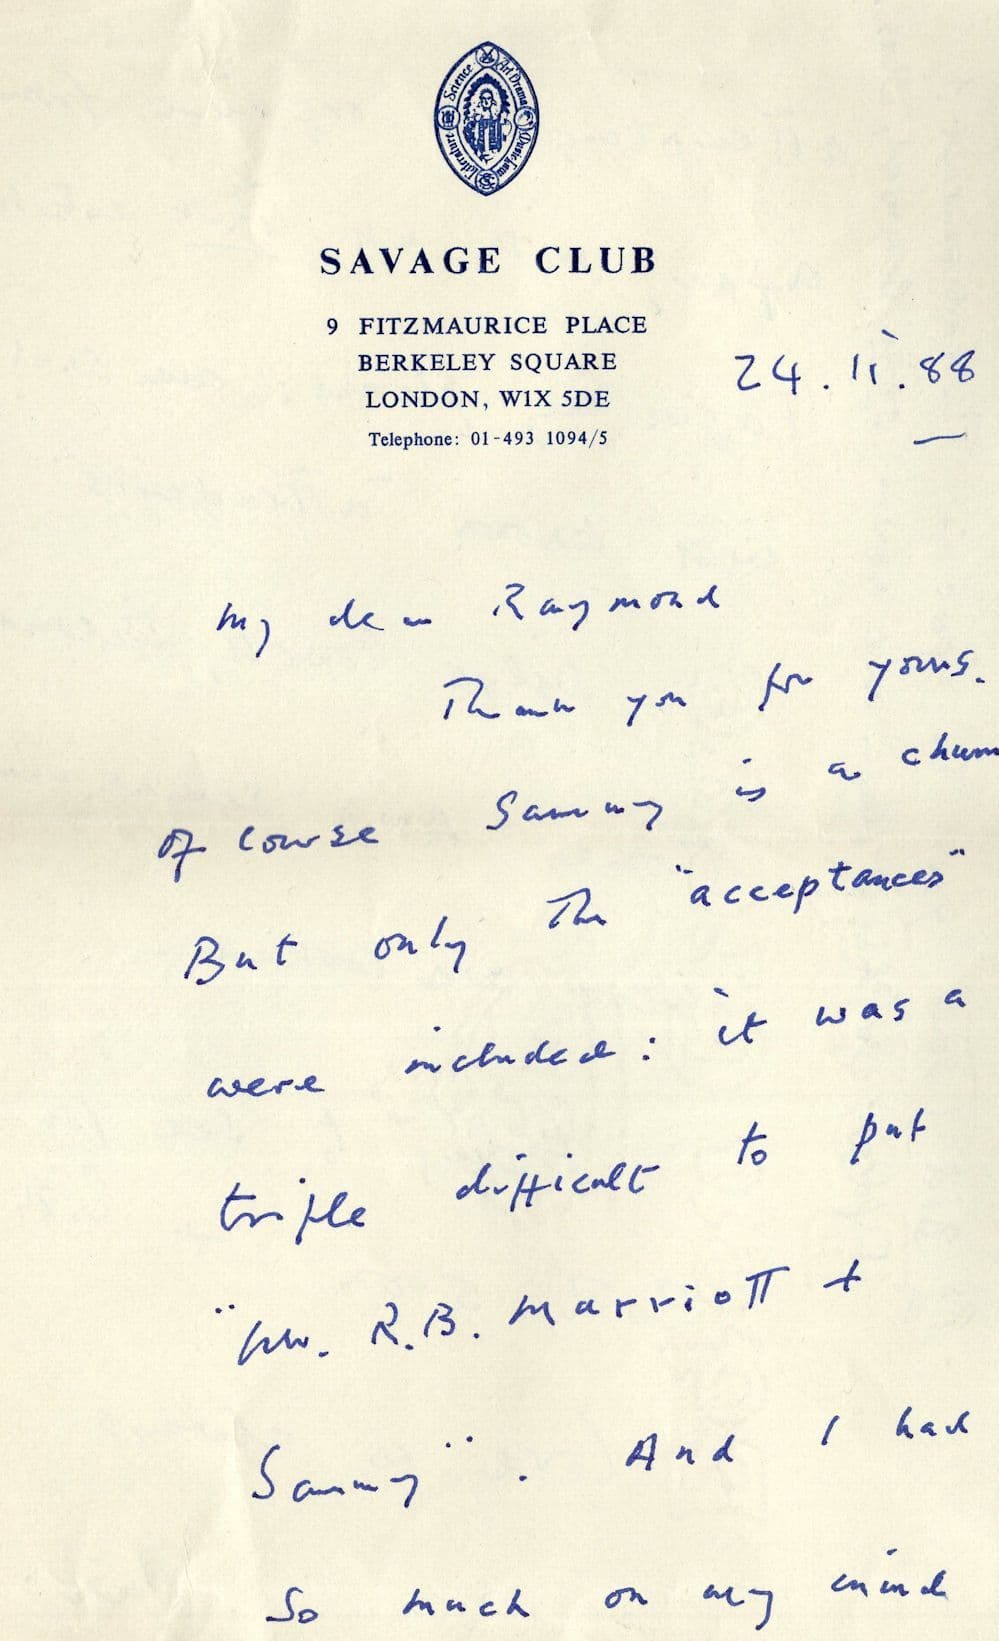 Science Art Drama
Literature Music Law
SAVAGE CLUB
9 FITZMAURICE PLACE
BERKELEY SQUARE
LONDON, W1X 5DE
Telephone: 01-493 1094/5
24.11.88
My dear Raymond
Thank you for yours.
Of course Sammy is a chum
But only the "acceptances"
were included: it was a
triple difficult to put
"Mr. R.B. Marriott +
Sammy". And I had
so much on my mind